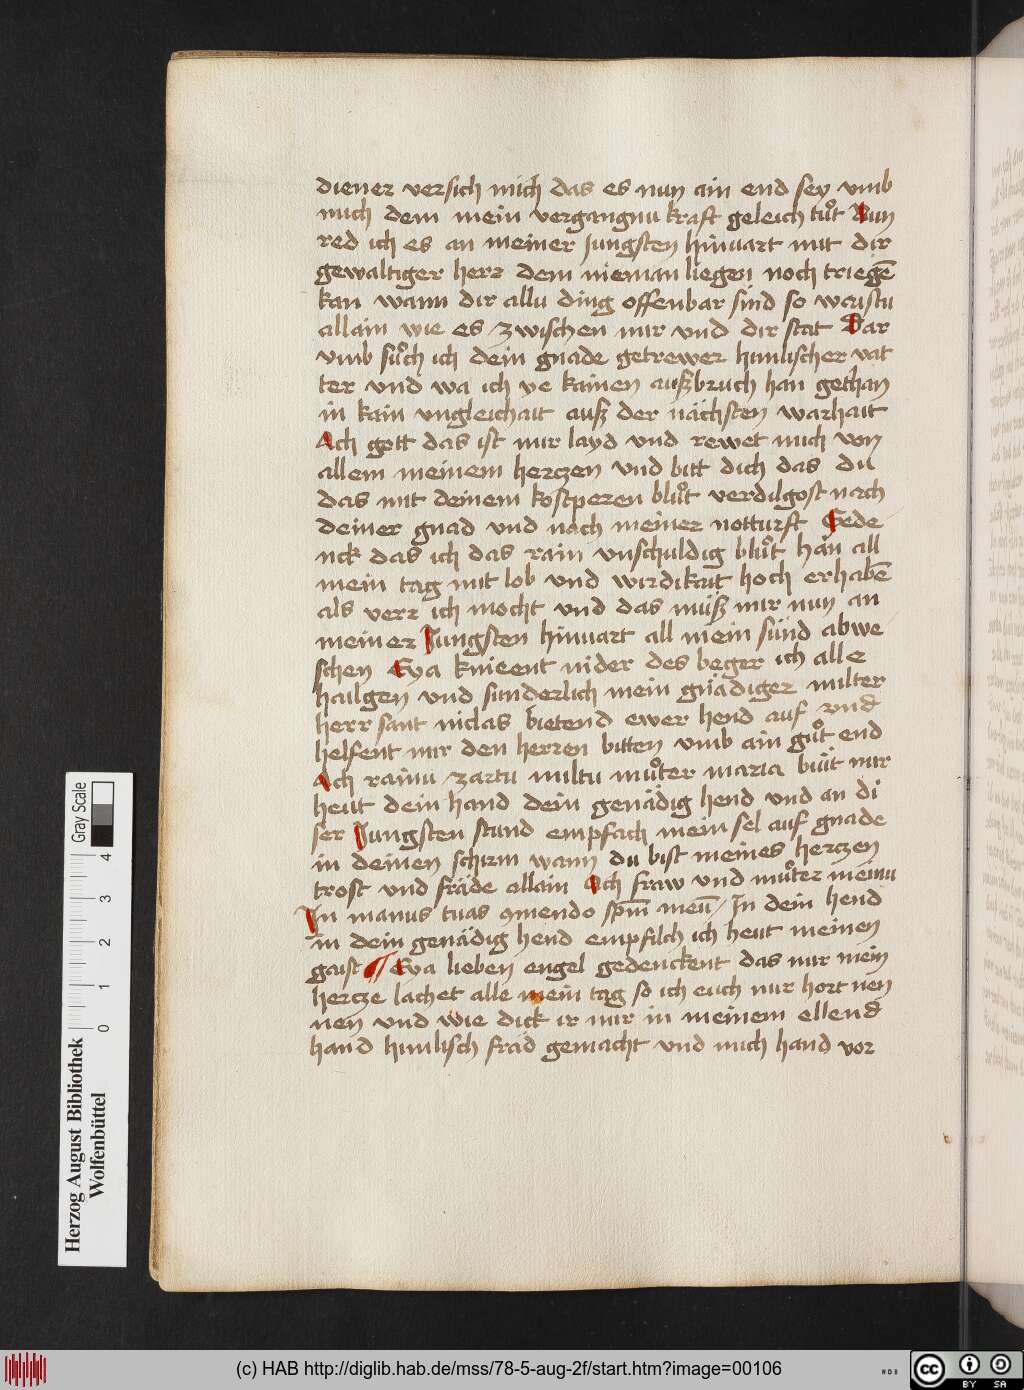 diener versich mich das es nun ain end sey vmb
mich dem mein vergangnu kraft geleich tuͦt Nun
red ich es an meiner Jungsten hinuart mit dir
gewaltiger herr dem nieman liegen noch triegē
kan wann dir allu ding offenbar sind so waistu
allain wie es zwischen mir vnd dir stat Dar
vmb suͦch ich dein gnade getrewer himlischer vat
ter vnd wa ich ye kainen außbruch han gethan
in kain vngleichait auß der nächsten warhait
Ach gott das ist mir layd vnd rewet mich von
allem meinem hertzen vnd bitt dich das du
das mit deinem kostperen bluͦt verdilgost nach
deiner gnad vnd nach meiner notturft Gede
nck das ich das rain vnschuldig bluͦt han all
mein tag mit lob vnd wirdikait hoch erhabē
als verr ich mocht vnd das muß mir nun an
meiner Jungsten hinuart all mein sünd abwe
schen Eya knieent nider des beger ich alle
hailgen vnd sunderlich mein gnädiger milter
herr sant niclas bietend ewer hend auf vnd
helfent mir den herren bitten vmb ain guͦt end
Ach rainu zartu miltu muͦter maria biüt mir
heüt dein hand dein genädig hend vnd an di
ser Jungsten stund empfach mein sel auf gnade
in deinen schirm wann du bist meines hertzen
trost vnd fräde allain Ach fraw vnd muͦter meinu
In manus tuas 9mendo spm̄ meū / In dein hend
In dein genädig hend empfilch ich heüt meinen
gaist ¶ Eya lieben engel gedenckent das mir mein
hertze lachet alle mein tag so ich euch nur hort nen
nen vnd wie dick ir mir in meinem ellend
hand himlisch fräd gemacht vnd mich hand vor
Gray Scale
0 1 2 3 4
Herzog August Bibliothek
Wolfenbüttel
(c) HAB http://diglib.hab.de/mss/78-5-aug-2f/start.htm?image=00106
WDB
cc BY SA